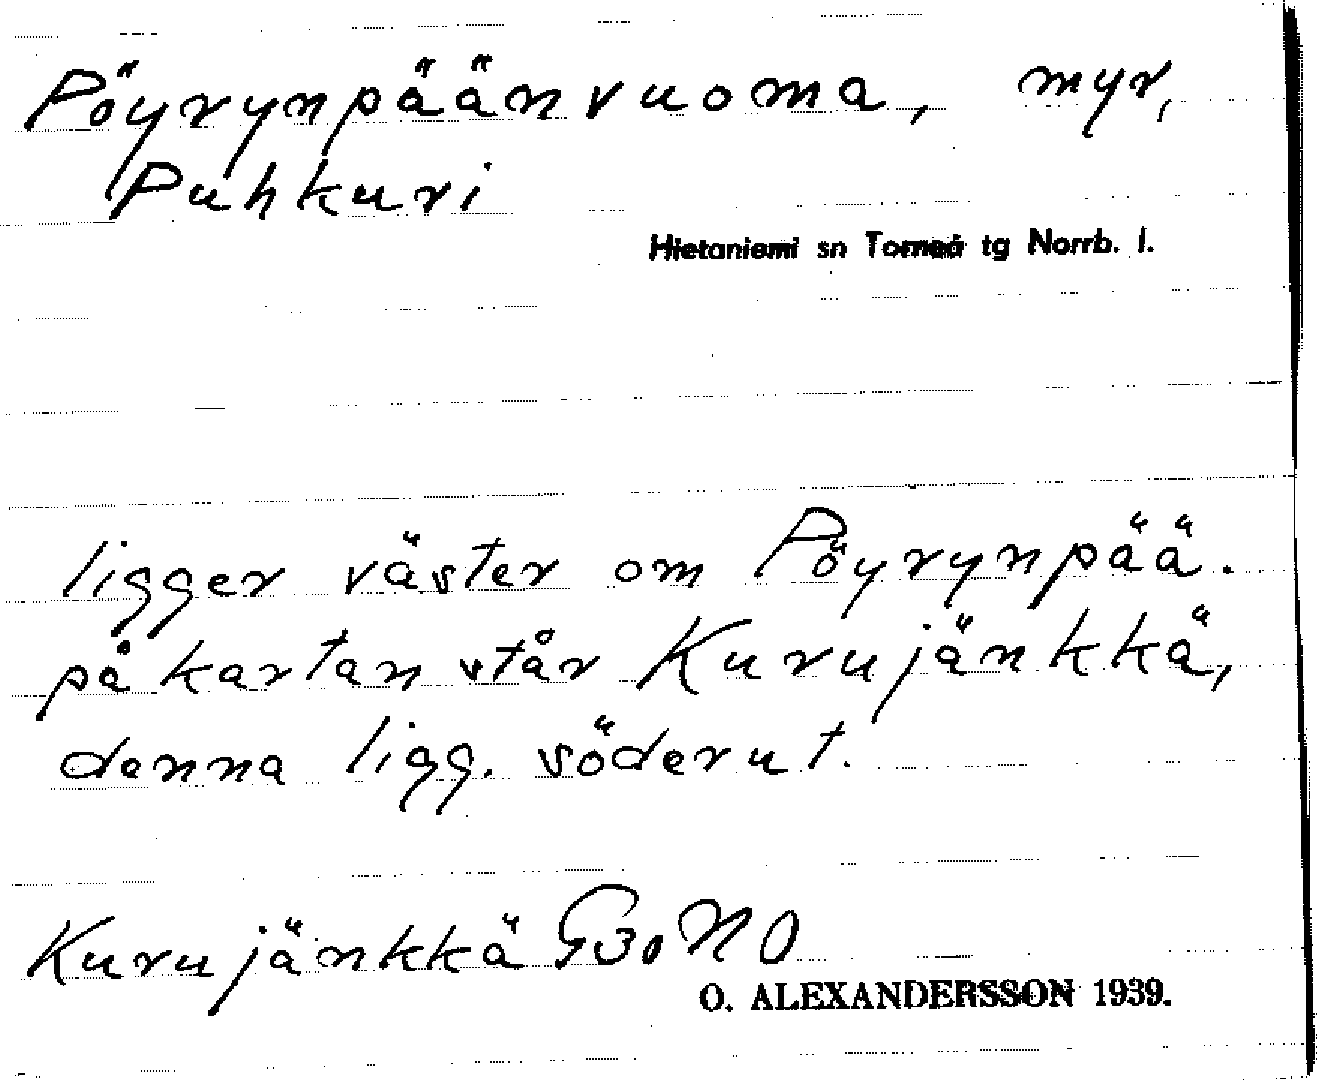 Pöyrynpäänvuoma, myr,
Puhkuri
Hietaniemi sn Torneå tg Norrb. l.
ligger väster om Pöyrynpää.
på kartan står Kurujänkkä,
denna ligg. söderut.
Kurujänkkä G30 NO
O. ALEXANDERSSON 1939.